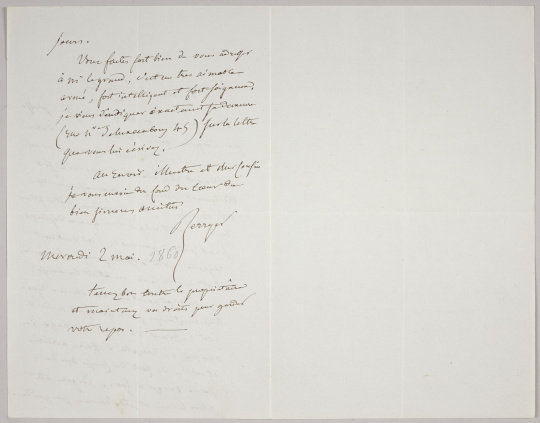 jours.
Vous faites fort bien de vous adresser
à Mr legrand, c'est un très aimable
avoué, fort intelligent et fort soigneux,
je vous indique exactement sa demeure
(rue de luxembourg 45) sur la lettre
que vous lui écrivez.
au revoir illustre et cher
je vous du fond du cœur de
bien sincères amitiés
Berryer
Mercredi 2 mai. 1860
tenez bon contre le propriétaire
et maintenez vos droits pour garder
votre repos.